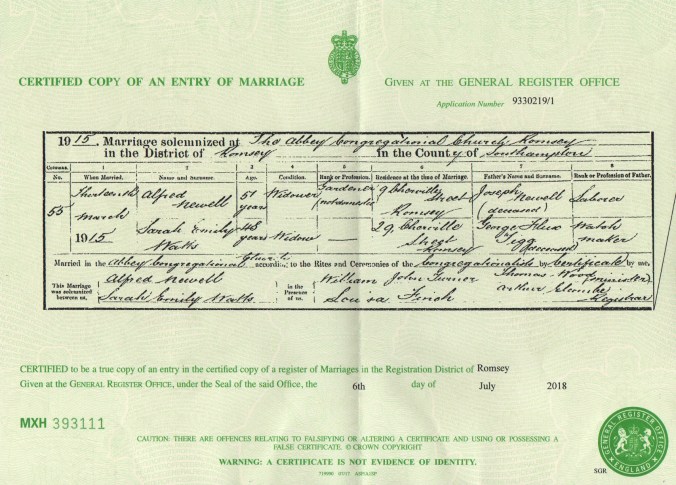 CERTIFIED COPY OF AN ENTRY OF MARRIAGE
GIVEN AT THE GENERAL REGISTER OFFICE
Application Number 9330219/1
1915. Marriage solemnized at The Abbey Congregational Church Romsey
in the District of Romsey in the County of Southampton
Columns. 1 2 3 4 5 6 7 8
No. When Married. Name and Surname. Age. Condition. Rank or Profession. Residence at the time of Marriage. Father's Name and Surname. Rank or Profession of Father.
55 Thirteenth March 1915
Alfred Newell 51 years Widower Gardener (not domestic) Street Romsey Joseph Newell (deceased) Laborer
Sarah Emily Watts 48 years Widow — 29 Street Romsey George Tegg (deceased) Watch maker
Married in the Abbey Congregational Church according to the Rites and Ceremonies of the Congregationalists by Certificate by us,
This Marriage was solemnized between us,
Alfred Newell
Sarah Emily Watts
in the Presence of us,
William John
Louisa Finch
Thomas Wood (minister)
Arthur Registrar
CERTIFIED to be a true copy of an entry in the certified copy of a register of Marriages in the Registration District of Romsey
Given at the GENERAL REGISTER OFFICE, under the Seal of the said Office, the 6th day of July 2018
MXH 393111
CAUTION: THERE ARE OFFENCES RELATING TO FALSIFYING OR ALTERING A CERTIFICATE AND USING OR POSSESSING A
FALSE CERTIFICATE. © CROWN COPYRIGHT
WARNING: A CERTIFICATE IS NOT EVIDENCE OF IDENTITY.
SGR
GENERAL REGISTER OFFICE
ENGLAND